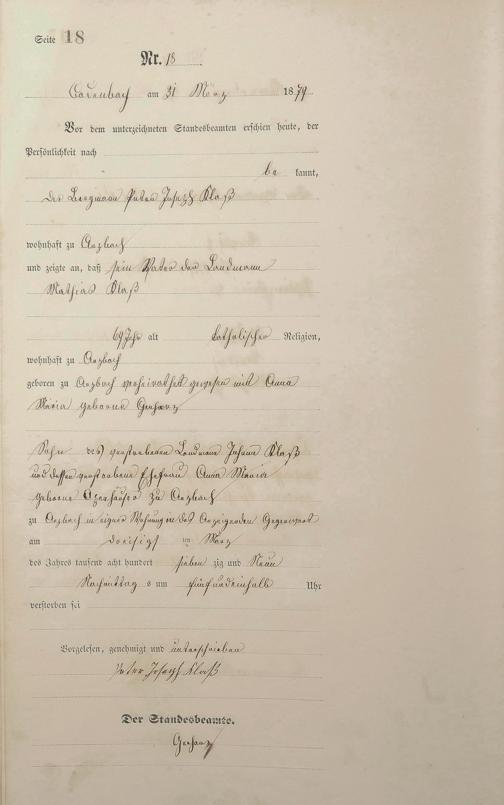 Seite 18
Nr. 18
Cadenbach am 31 März 1879
Vor dem unterzeichneten Standesbeamten erschien heute, der
Persönlichkeit nach
be kannt,
der Bergmann Peter Joseph Klaß
wohnhaft zu Arzbach
und zeigte an, daß sein Vater der Landmann
Mathias Klaß
69 Jahr alt katholischer Religion,
wohnhaft zu Arzbach
geboren zu Arzbach verheirathet gewesen mit Anna
Maria geborne Gerharz
Sohn des verstorbenen Landmann Johann Klaß
und dessen verstorbene Ehefrau Anna Maria
geborne zu Arzbach
zu Arzbach in eigner Wohnung in des Anzeigenden Gegenwart
am dreisigst en März
des Jahres tausend acht hundert sieben zig und Neun
Nachmittag s um fünfundeinhalb Uhr
verstorben sei
Vorgelesen, genehmigt und unterschrieben
Peter Joseph Klaß
Der Standesbeamte.
Gerharz